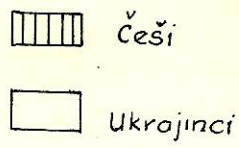 Češi
Ukrajinci